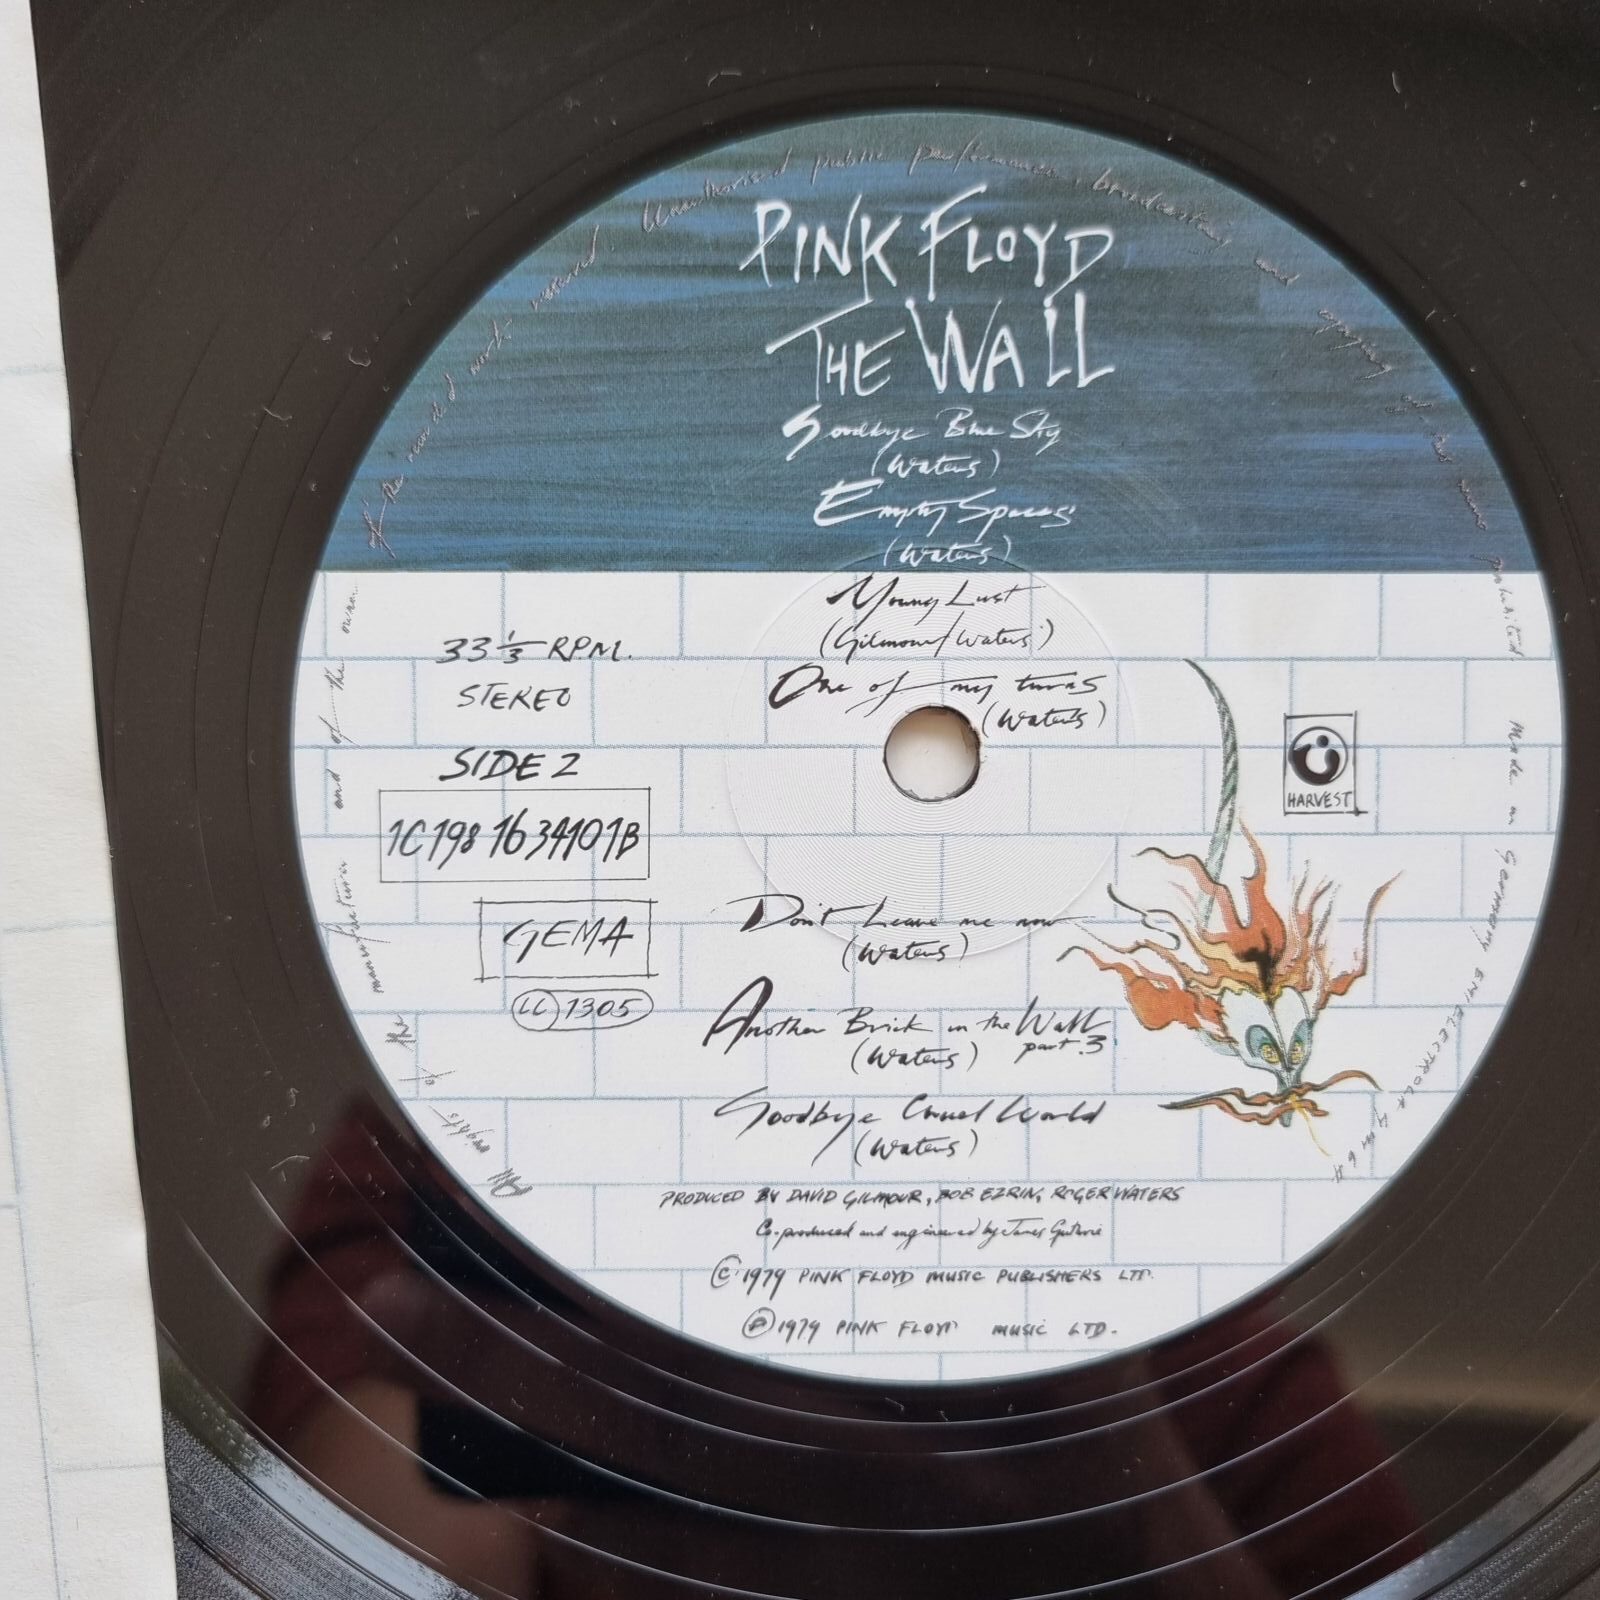 PINK FLOYD
THE WALL
Goodbye Blue Sky
(Waters)
Empty Spaces
(Waters)
Young Lust
(Gilmour/Waters)
One of my turns
(Waters)
33 1/3 RPM.
STEREO
SIDE 2
1C 198 1634101B
GEMA
LC 1305
HARVEST
Don't Leave me now
(Waters)
Another Brick in the Wall
part.3
(Waters)
Goodbye Cruel World
(Waters)
PRODUCED BY DAVID GILMOUR, BOB EZRIN, ROGER WATERS
Co-produced and engineered by James Guthrie
© 1979 PINK FLOYD MUSIC PUBLISHERS LTD.
℗ 1979 PINK FLOYD MUSIC LTD.
All rights of the manufacturer and of the owner of the recorded work reserved Unauthorised public performance, broadcasting and copying of this record prohibited Made in Germany EMI ELECTROLA GmbH